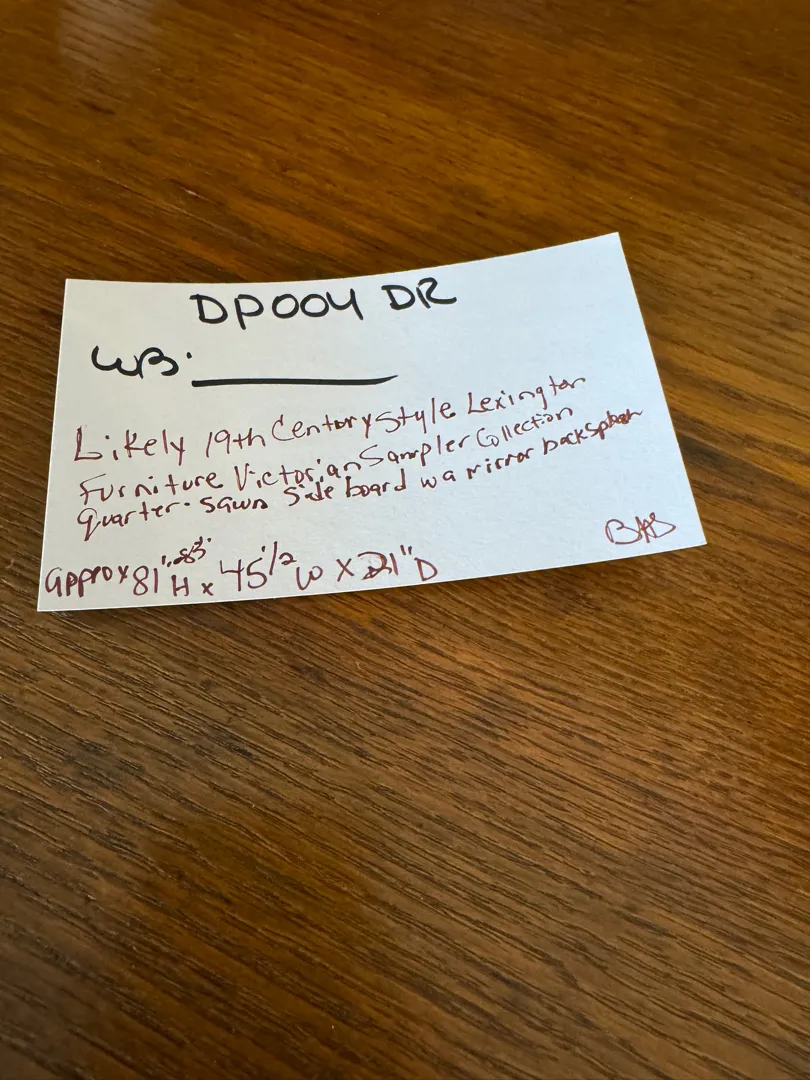 DP004 DR
WB.
Likely 19th Century style Lexington
Furniture Victorian Sampler Collection
quarter-sawn side board w a mirror backsplash
approx 81" H x 45 1/2 W x 21" D
BAS